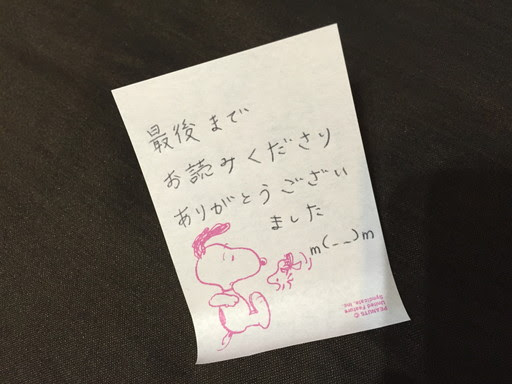 最後まで
お読みくださり
ありがとうござい
ました
m(_ _)m
PEANUTS ©
United Feature
Syndicate, Inc.